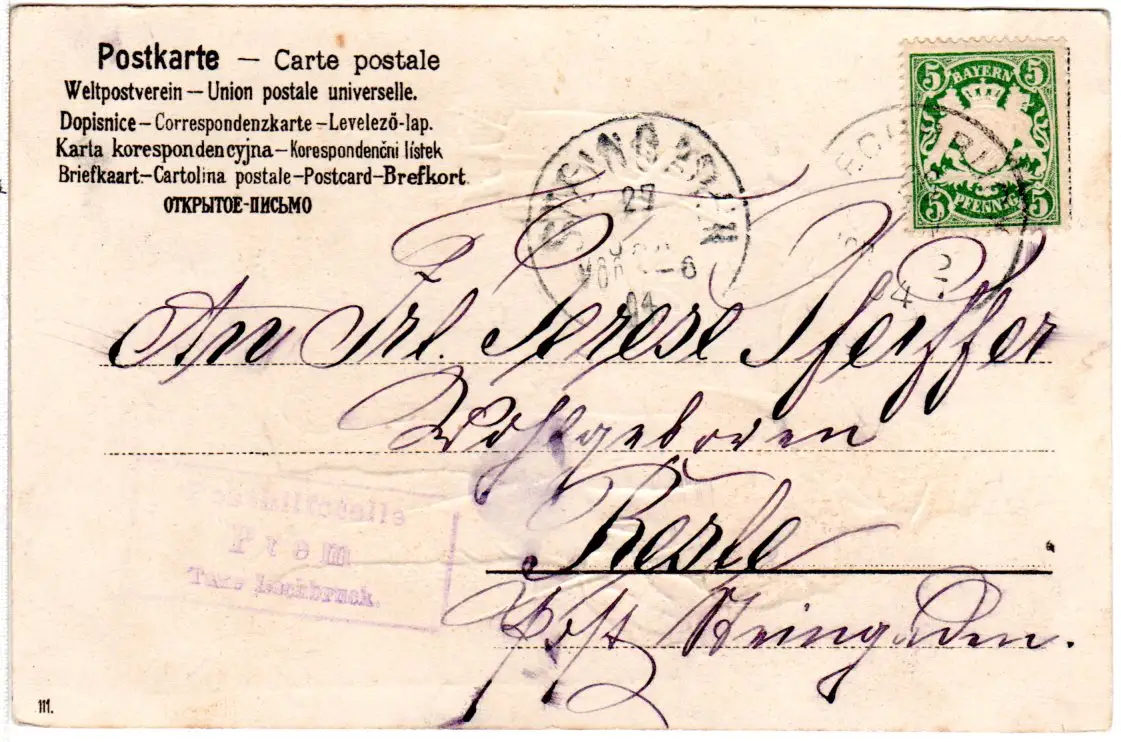 Postkarte — Carte postale
Weltpostverein — Union postale universelle.
Dopisnice — Correspondenzkarte — Levelező-lap.
Karta korespondencyjna — Korespondenční lístek
Briefkaart — Cartolina postale — Postcard — Brefkort
ОТКРЫТОЕ-ПИСЬМО
5 BAYERN 5
5 PFENNIG 5
STEINGADEN
27
VOR 6
04
04
An Frl. Terese Pfeiffer
Wohlgeboren
Kerle
Post Steingaden.
Prem
Taxe Lechbruck.
111.